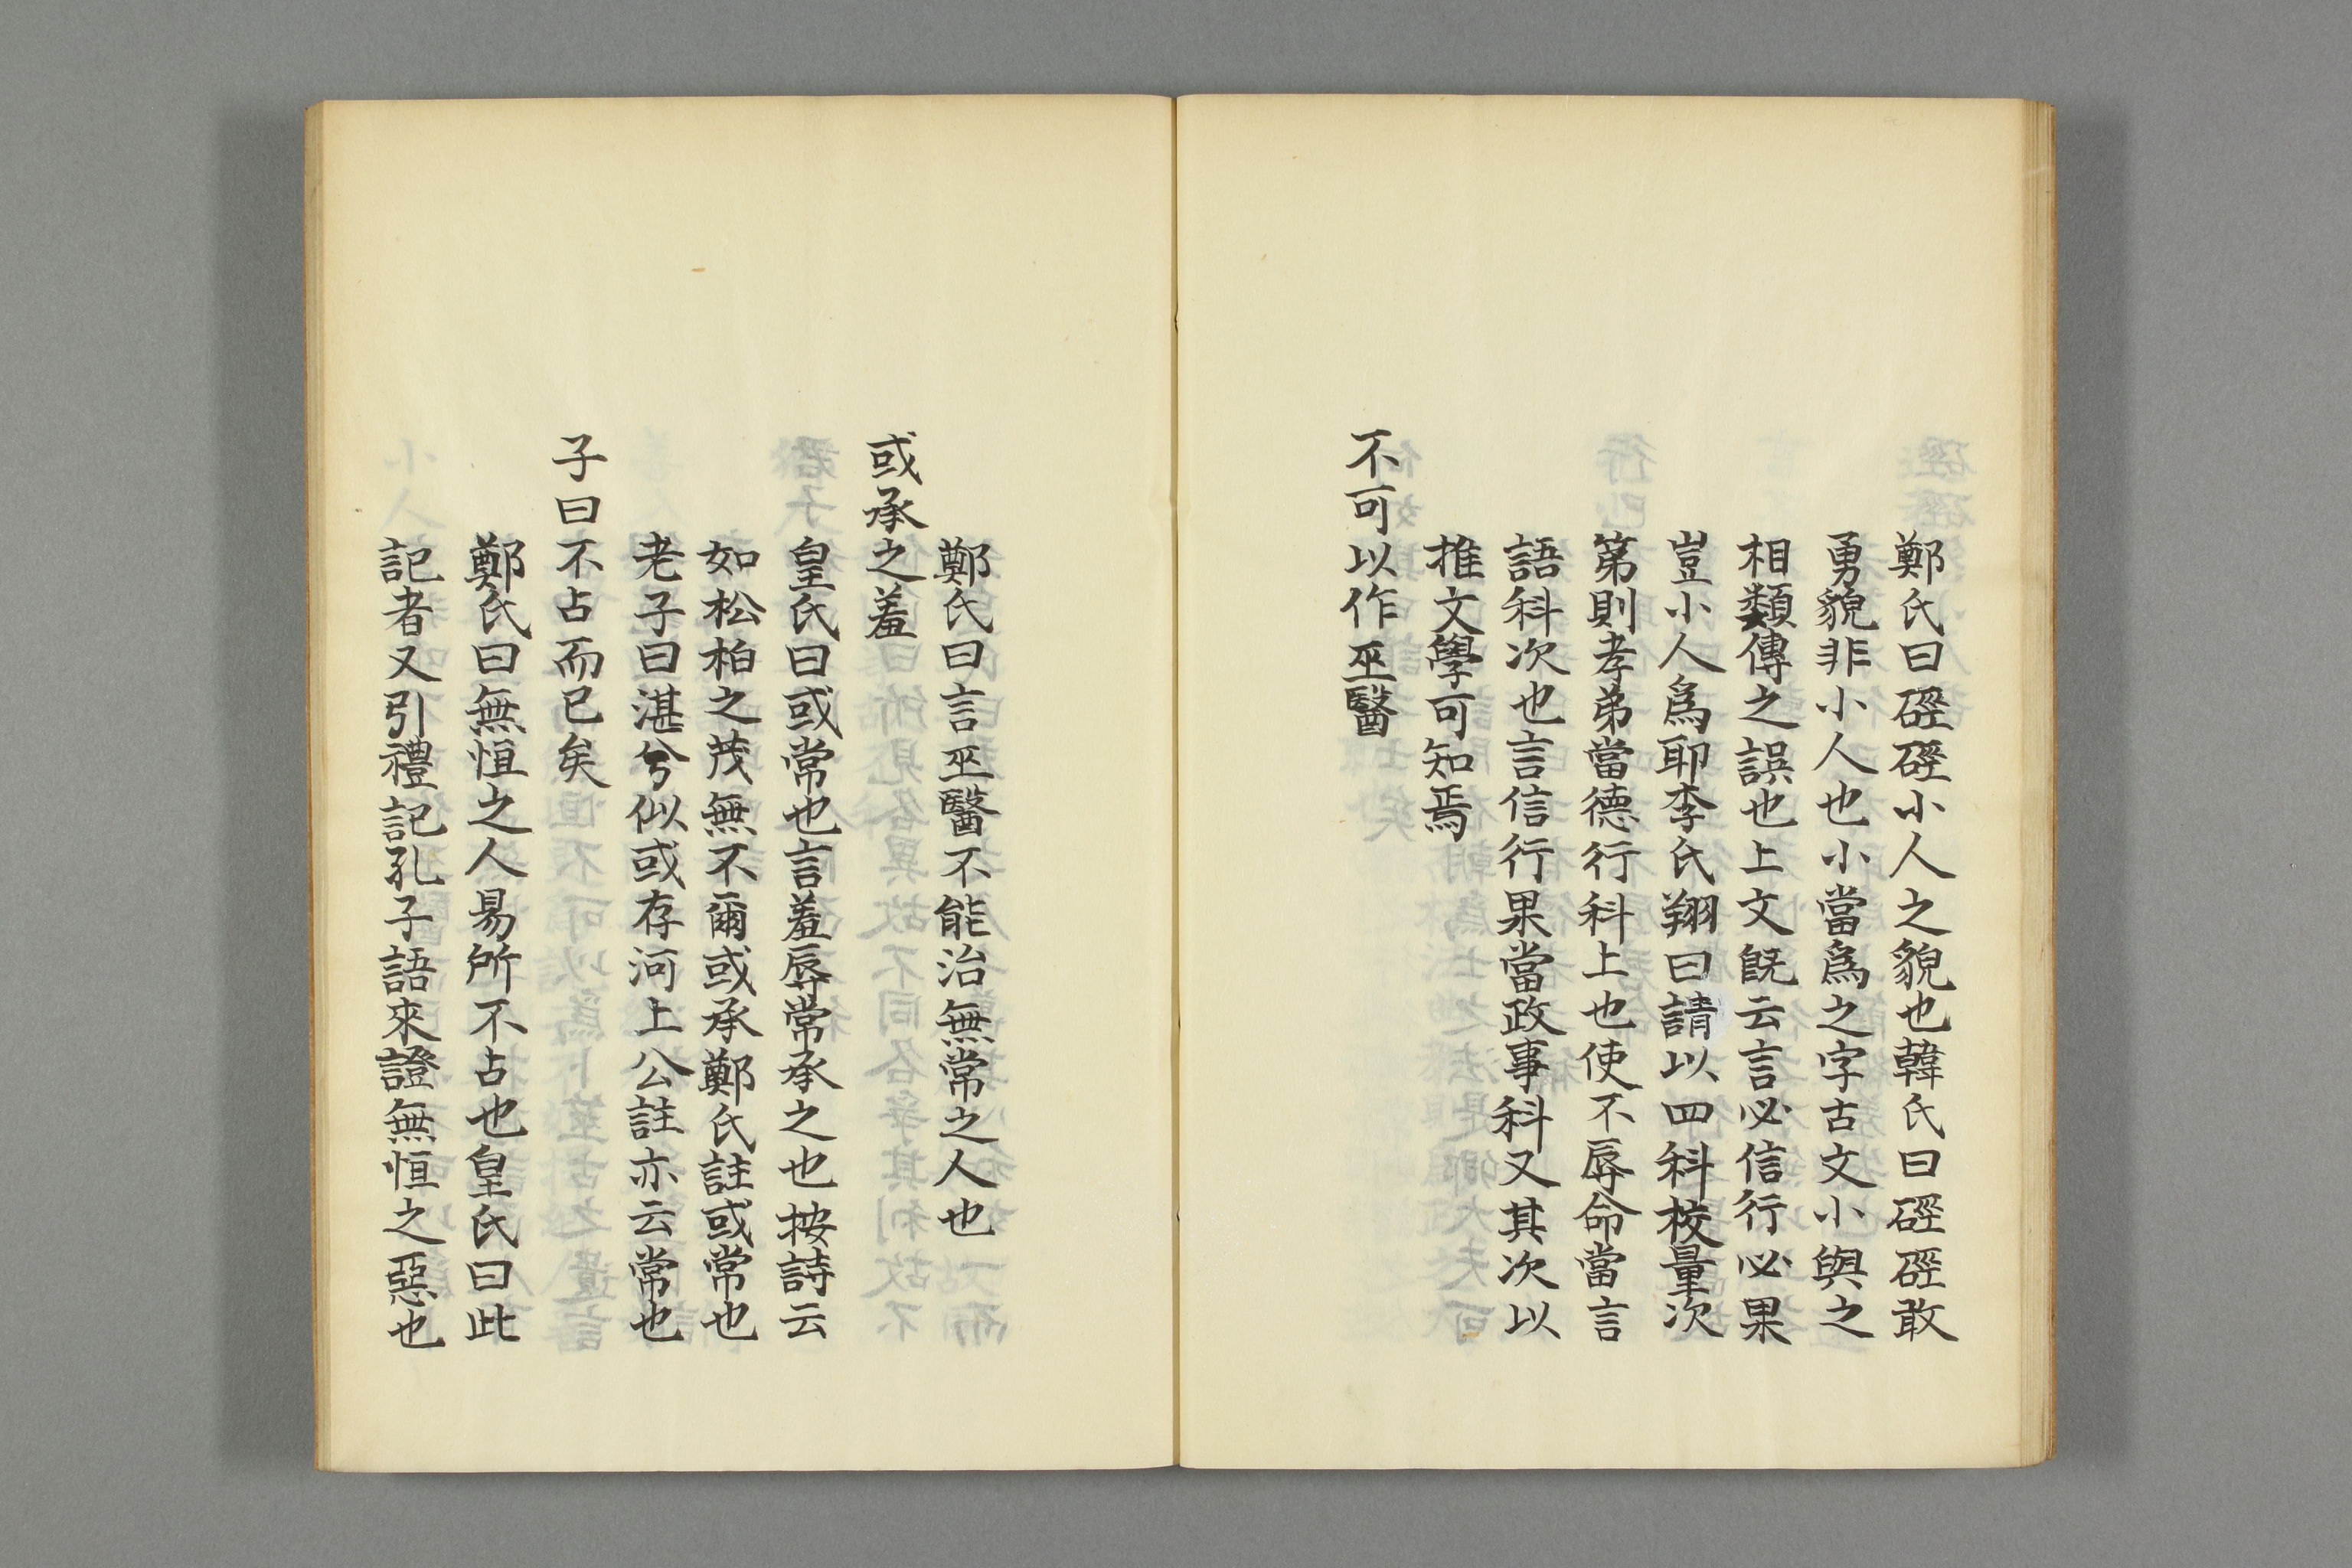 鄭氏曰硜硜小人之貌也韓氏曰硜硜敢
勇貌非小人也小當爲之字古文小與之
相類傳之誤也上文旣云言必信行必果
豈小人爲耶李氏翔曰請以四科校量次
第則孝弟當德行科上也使不辱命當言
語科次也言信行果當政事科又其次以
推文學可知焉
不可以作巫醫
鄭氏曰言巫醫不能治無常之人也
或承之羞
皇氏曰或常也言羞辱常承之也按詩云
如松柏之茂無不爾或承鄭氏註或常也
老子曰湛兮似或存河上公註亦云常也
子曰不占而已矣
鄭氏曰無恒之人易所不占也皇氏曰此
記者又引禮記孔子語來證無恒之惡也